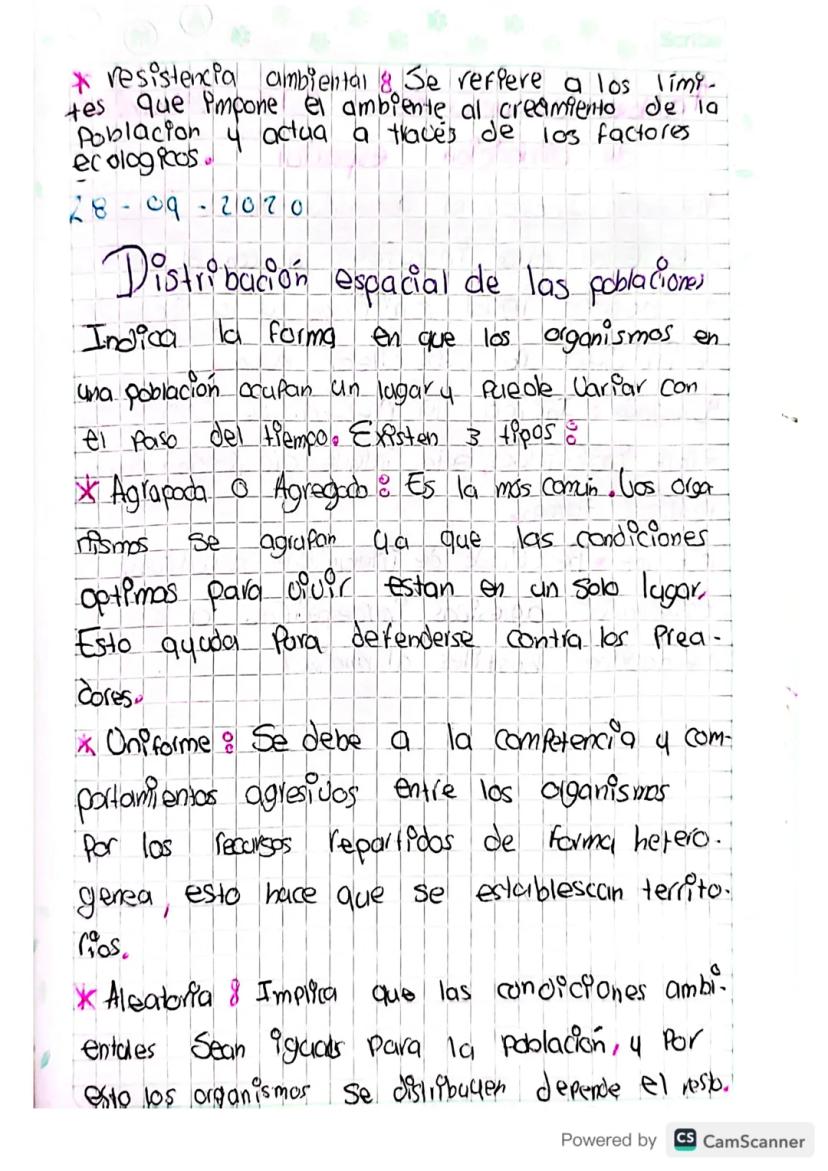 * resistencia ambiental : Se refiere a los limi-
tes que impone el ambiente al creamiento de la
Poblacion y actua a través de los factores
ecologicos.
28 - 09 - 2020
Distribación espacial de las poblaciones
Indica la forma en que los organismos en
una población ocupan un lugar y Puede Variar con
el Paso del tiempo. Existen 3 tipos :
* Agrupada o Agregado : Es la más común. Los orga
nismos se agrupan ya que las condiciones
optimas para vivir estan en un solo lugar.
Esto ayuda Para defenderse contra los Prea-
dores.
* Uniforme : Se debe a la competencia y com-
portamientos agresivos entre los organismos
Por los recursos repartidos de forma hetero-
genea, esto hace que se establescan territo-
rios.
* Aleatoria : Implica que las condiciones ambi-
entales Sean iguales para la población, y Por
esto los organismos se distribuyen depende el resto.
Powered by CS CamScanner